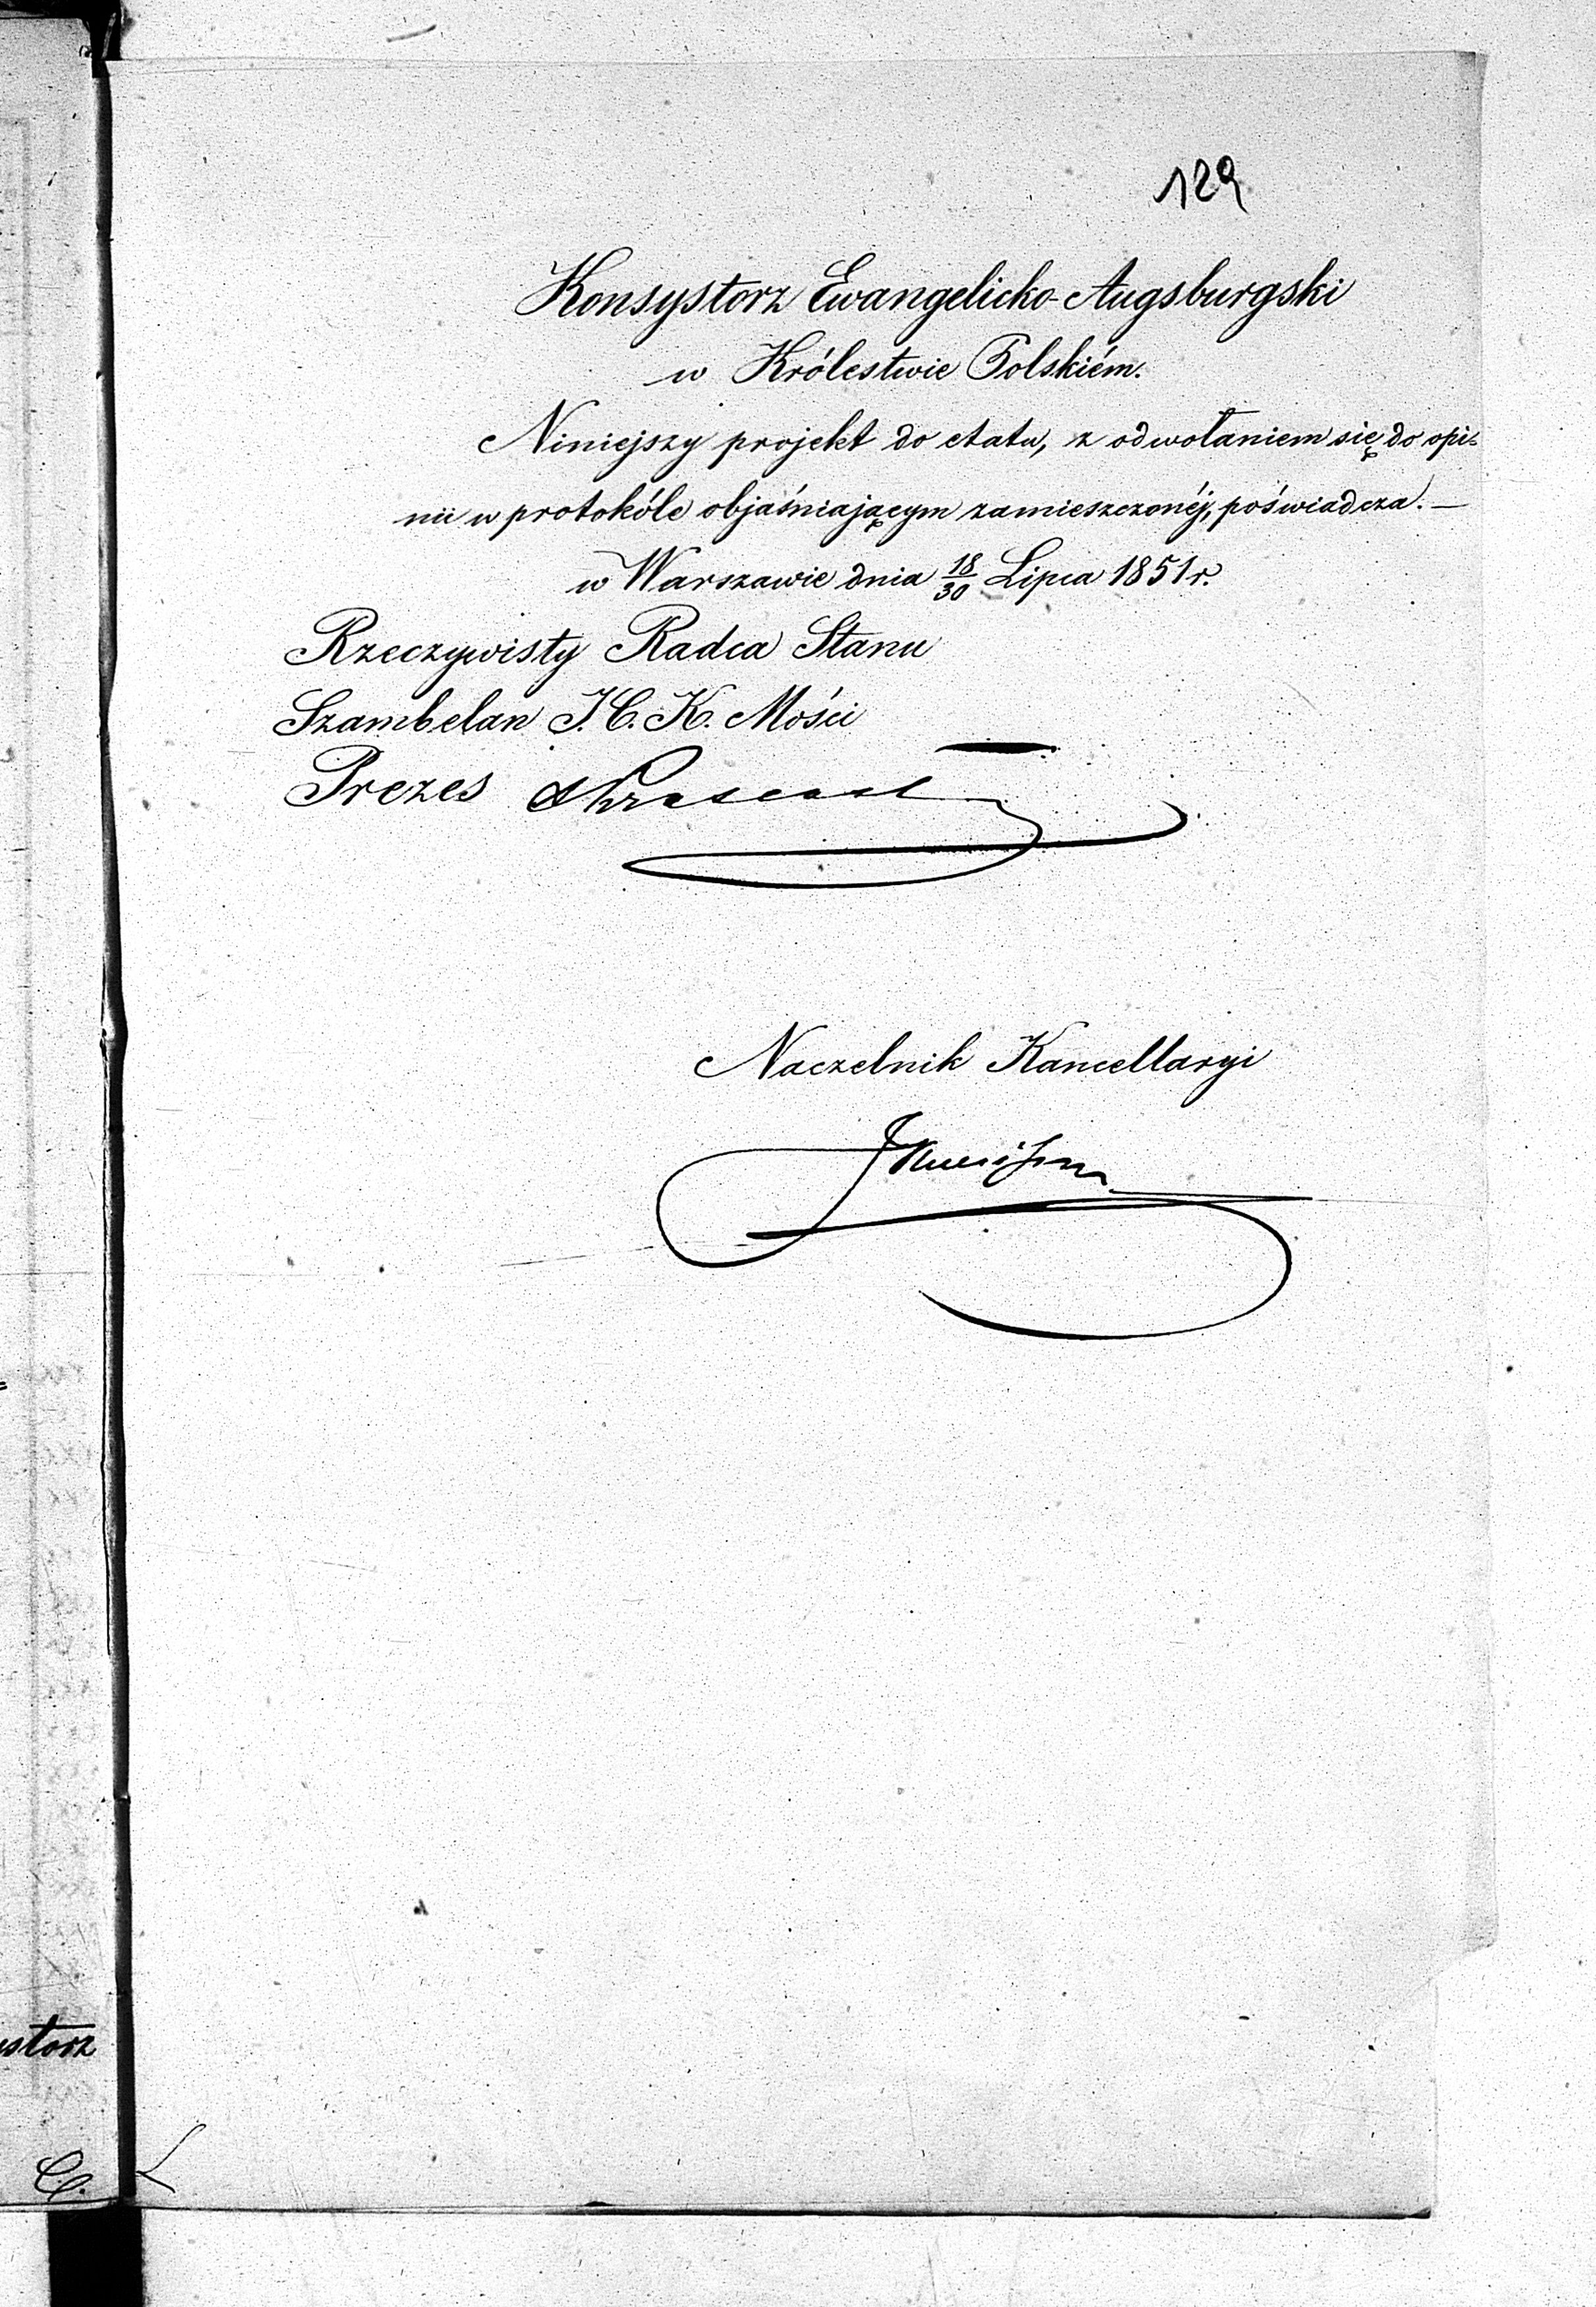 129
Konsystorz Ewangelicko-Augsburgski
w Królestwie Polskiém.
Niniejszy projekt do etatu, z odwołaniem się do opi=
nii w protokóle objaśniającym zamieszczonéj, poświadcza. —
w Warszawie dnia 18/30 Lipca 1851 r.
Rzeczywisty Radca Stanu
Szambelan J. C. K. Mości
Prezes
Naczelnik Kancellaryi